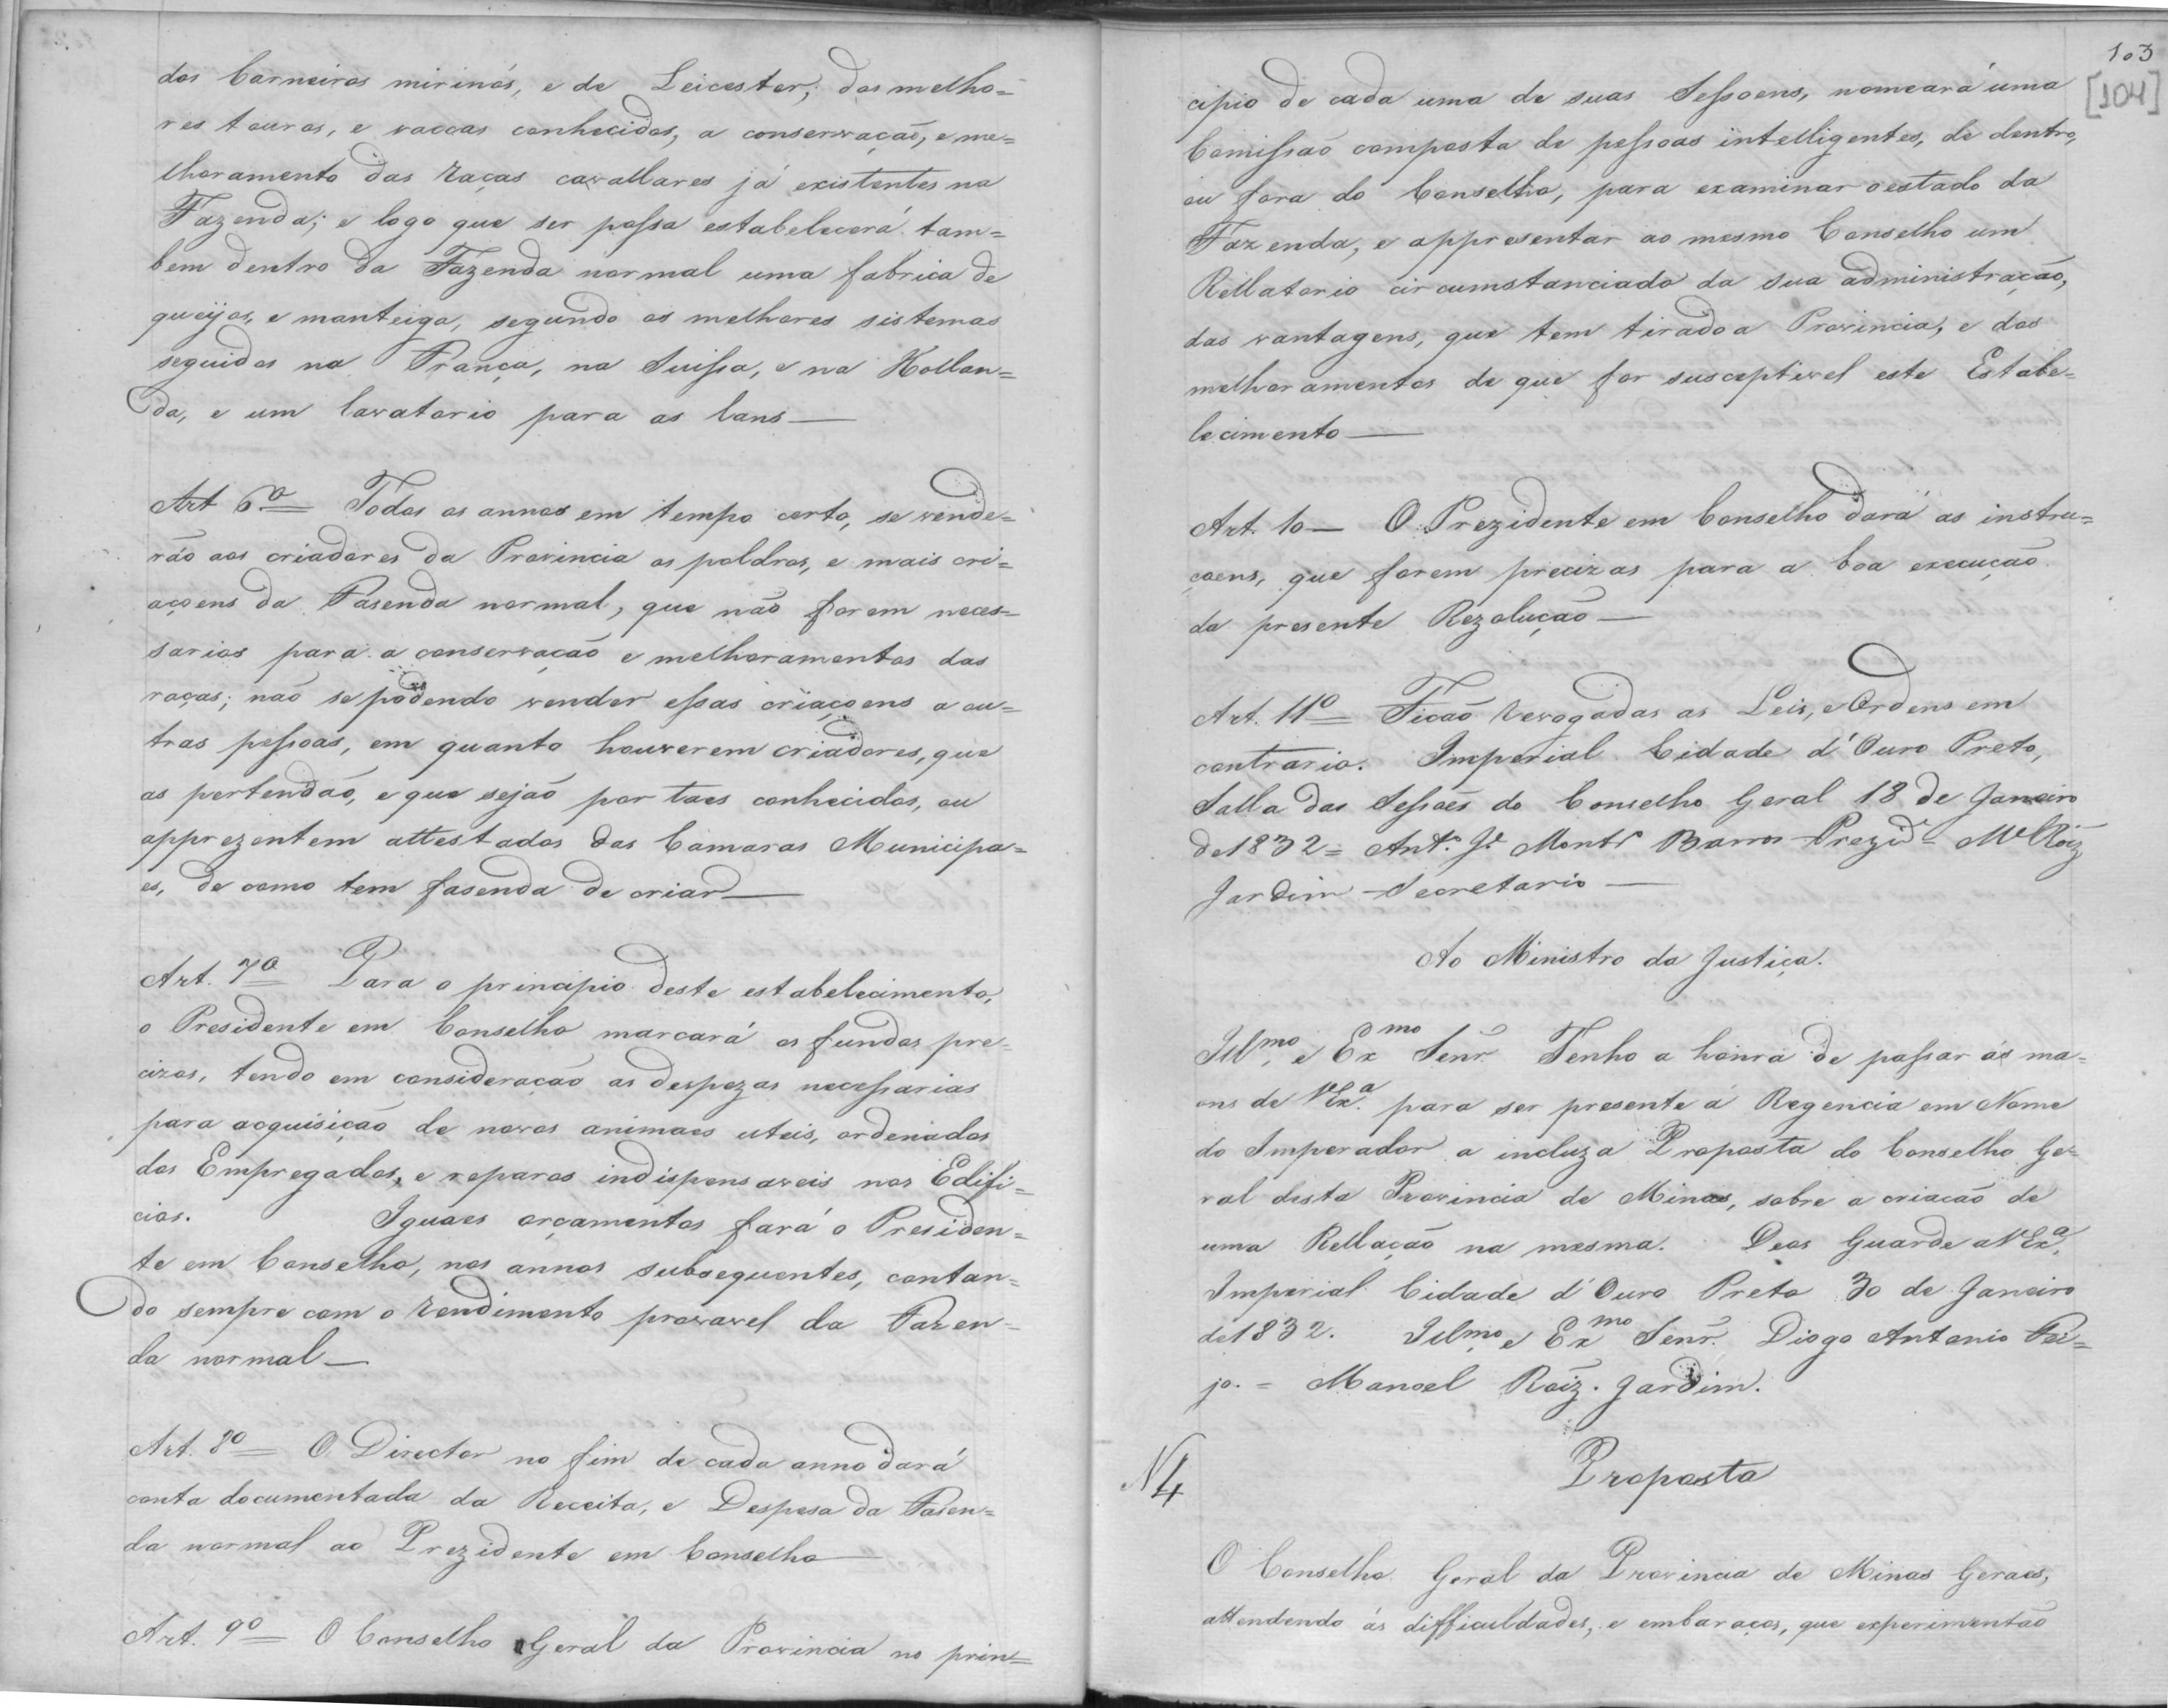 dos Carneiros mirinós, e de Leicester; dos melho=
res touros, e vaccas conhecidos, a conservação, e me=
lhoramento das raças cavallares já existentes na
Fazenda; e logo que ser possa estabelecerá tam=
bem dentro da Fazenda normal uma fabrica de
queijos, e manteiga, segundo os melhores sistemas
seguidos na França, na Suissa, e na Hollan=
da, e um lavatorio para as lans —
Art 6º = Todos os annos em tempo certo, se vende=
rão aos criadores da Provincia os poldros, e mais cri=
açoens da Fasenda normal, que não forem neces=
sarias para a conservação e melhoramentos das
raças; não se podendo vender essas criaçoens a ou=
tras pessoas, em quanto houverem criadores, que
as pertendão, e que sejão por taes conhecidos, ou
apprezentem attestados das Camaras Municipa=
es, de como tem fasenda de criar —
Art. 7º Para o principio deste estabelecimento,
o Presidente em Conselho marcará os fundos pre=
cizos, tendo em consideração as despezas necessarias
para acquisição de novos animaes uteis, ordenados
dos Empregados, e reparos indispensaveis nos Edifi=
cios. Iguaes orçamentos fará o Presiden=
te em Conselho, nos annos subsequentes, contan=
do sempre com o rendimento provavel da Fazen=
da normal —
Art. 8º = O Director no fim de cada anno dará
conta documentada da Receita, e Despesa da Fasen=
da normal ao Prezidente em Conselho —
Art. 9º = O Conselho Geral da Provincia no prin=
103
[104]
cipio de cada uma de suas Sessoens, nomeará uma
Comissão composta de pessoas intelligentes, de dentro,
ou fora do Conselho, para examinar o estado da
Fazenda, e appresentar ao mesmo Conselho um
Rellatorio circumstanciado da sua administração,
das vantagens, que tem tirado a Provincia, e dos
melhoramentos de que for susceptivel este Estabe=
lecimento —
Art. 10 — O Prezidente em Conselho dará as instru=
çoens, que forem precizas para a boa execução
da presente Rezolução —
Art. 11º = Ficão revogadas as Leis, e Ordens em
contrario. Imperial Cidade d'Ouro Preto,
Salla das Sessões do Conselho Geral 18 de Janeiro
de 1832 = Antº. Jé. Montº Barros Prezidº = Mel Roiz
Jardim Secretario —
Ao Ministro da Justiça.
Illmo. e Exmo Senr. Tenho a honra de passar ás ma=
ons de VExª. para ser presente á Regencia em Nome
do Imperador a incluza Proposta do Conselho Ge=
ral desta Provincia de Minas, sobre a criacão de
uma Rellação na mesma. Deos Guarde a VExª.
Imperial Cidade d'Ouro Preto 30 de Janeiro
de 1832. Illmo. e Exmo Senr. Diogo Antonio Fei=
jo. = Manoel Roiz. Jardim.
N 4
Proposta
O Conselho Geral da Provincia de Minas Geraes,
attendendo ás difficuldades, e embaraços, que experimentão